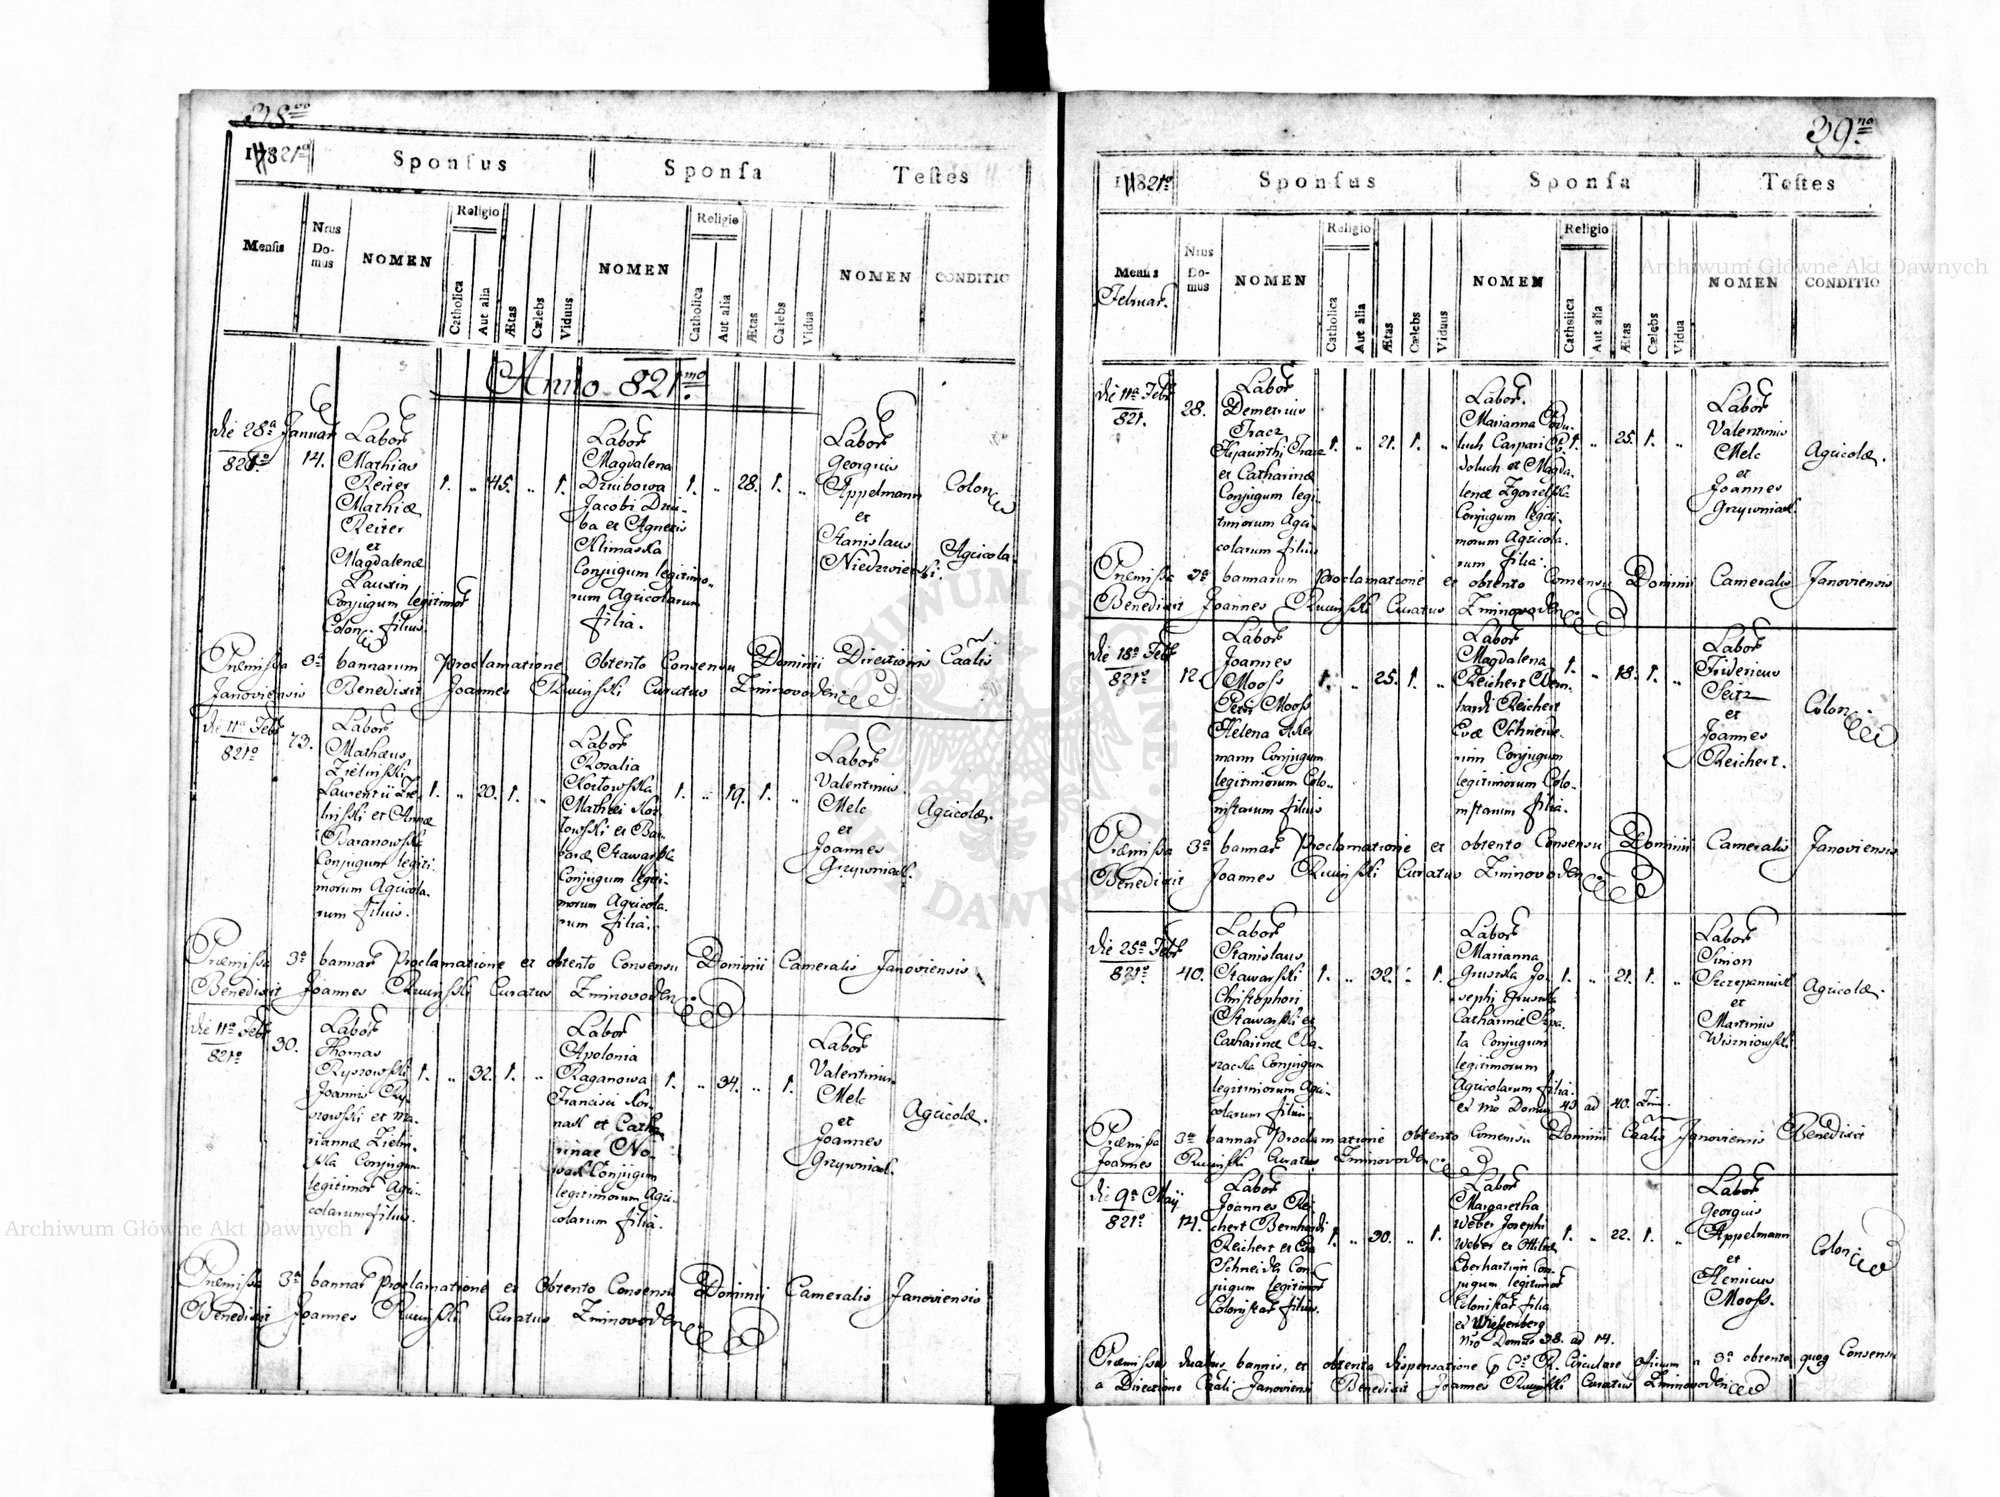 38
17821º
Sponsus
Sponsa
Testes
Mensis
Nrus
Do-
mus
NOMEN
Religio
Catholica
Aut alia
Ætas
Cælebs
Viduus
NOMEN
Religio
Catholica
Aut alia
Ætas
Cælebs
Vidua
NOMEN
CONDITIO
Anno 821mo
die 28a Januar
821º
14.
Labor
Mathias
Reiter
Mathiæ
Reiter
et
Magdalenæ
Conjugum legitimor
Colon. filius.
1. „ 45. „ 1.
Labor
Magdalena
Dziubowa
Jacobi Dziu-
ba et Agnetis
Klimaska
Conjugum legitimo-
rum Agricolarum
filia.
1. „ 28. 1. „
Labor
Georgius
Appelmann
et
Stanislaus
Coloni
Agricola.
Præmissa 3a bannarum Proclamatione Obtento Consensu Dominii Directionis Caalis
Janoviensis Benedixit Joannes Curatus
die 11a Febr
821º
73.
Labor
Mathæus
Zielinski
Laurentii Zie-
linski et Annæ
Baranowska
Conjugum legiti-
morum Agricola-
rum filius.
1. „ 20. 1. „
Labor
Rosalia
Kozlowska
Mathæi Koz-
lowski et Bar-
baræ
Conjugum legiti-
morum Agricola-
rum filia.
1. „ 19. 1. „
Labor
Valentinus
Melc
et
Joannes
Grzywniak.
Agricolæ.
Præmissa 3a bannar Proclamatione et obtento Consensu Dominii Cameralis Janoviensis
Benedixit Joannes Curatus
die 11a Febr
821º
30.
Labor
Thomas
1. „ 32. 1. „
Joannis
et Ma-
riannæ Zielin-
ska Conjugum
legitimor Agri-
colarum filius.
Labor
Apolonia
Raganowa
Francisci
et Catha-
rinae No-
wak Conjugum
legitimorum Agri-
colarum filia.
1. „ 34. „ 1.
Labor
Valentinus
Melc
et
Joannes
Grzywniak.
Agricolæ.
Præmissa 3a bannar Proclamatione et Obtento Consensu Dominii Cameralis Janoviensis
Benedixit Joannes Curatus
39no
17821º
Sponsus
Sponsa
Testes
Mensis
Februar.
Nrus
Do-
mus
NOMEN
Religio
Catholica
Aut alia
Ætas
Cælebs
Viduus
NOMEN
Religio
Catholica
Aut alia
Ætas
Cælebs
Vidua
NOMEN
CONDITIO
die 11a Febr
821.
28.
Labor
Demetrius
Tracz
Hyacinthi Tracz
et Catharinæ
Conjugum legi-
timorum Agri-
colarum filius
1. „ 21. 1. „
Labor.
Marianna
Caspari
et Magda-
lenæ
Conjugum legiti-
morum Agricola-
rum filia.
1. „ 25. 1. „
Labor
Valentinus
Melc
et
Joannes
Grzywniak.
Agricolæ.
Præmissa 3a bannarum Proclamatione et obtento Consensu Dominii Cameralis Janoviensis
Benedixit Joannes Curatus
die 18a Febr
821º
12.
Labor
Joannes
Mooss
Petri Mooss
Helena
mann Conjugum
legitimorum Colo-
nistarum filius
1. „ 25. 1. „
Labor
Magdalena
Reichert Bern-
hardi Reichert
Evæ Schneide-
rinn Conjugum
legitimorum Colo-
nistarum filia.
1. „ 18. 1. „
Labor
Fridericus
Seitz
et
Joannes
Reichert.
Coloni
Præmissa 3a bannar Proclamatione et obtento Consensu Dominii Cameralis Janoviensis
Benedixit Joannes Curatus
die 25a Febr
821º
40.
Labor
Stanislaus
Christophori
et
Catharinæ
Conjugum
legitimorum Agri-
colarum filius.
1. „ 32. „ 1.
Labor
Marianna
Gruszka Jo-
sephi Gruszka
Catharinæ
Conjugum
legitimorum
Agricolarum filia.
ex Nro Domus 43 ad 40.
1. „ 21. 1. „
Labor
Simon
Szczepaniuk
et
Martinus
Agricolæ.
Præmissa 3a bannar Proclamatione obtento Consensu Dominii Caalis Janoviensis Benedixit
Joannes Curatus
die 9a Maij
821º
14.
Labor
Joannes Rei-
chert Bernhardi
Reichert et Eva
Schneider Con-
jugum legitimor
Colonistar filius.
1. „ 30. „ 1.
Labor
Margaretha
Weber Josephi
Weber et Ottiliæ
Eberhartinn Con-
jugum legitimor
Colonistar filia
ex Wiesenberg
Nro Domus 38. ad 14.
1. „ 22. 1. „
Labor
Georgius
Appelmann
et
Henricus
Mooss.
Coloni
Præmissis duabus bannis, et obtenta dispensatione Circulare Officium a 3a obtento quoq Consensu
a Directione Caali Janoviensi Benedixit Joannes Curatus
Archiwum Główne Akt Dawnych
Archiwum Główne Akt Dawnych
ARCHIWUM GŁÓWNE AKT DAWNYCH